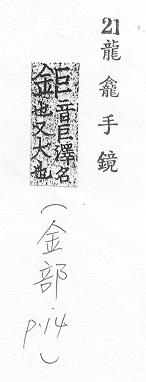 21 龍龕手鏡
鉅音巨澤名
也又大也
(金部 p.14)